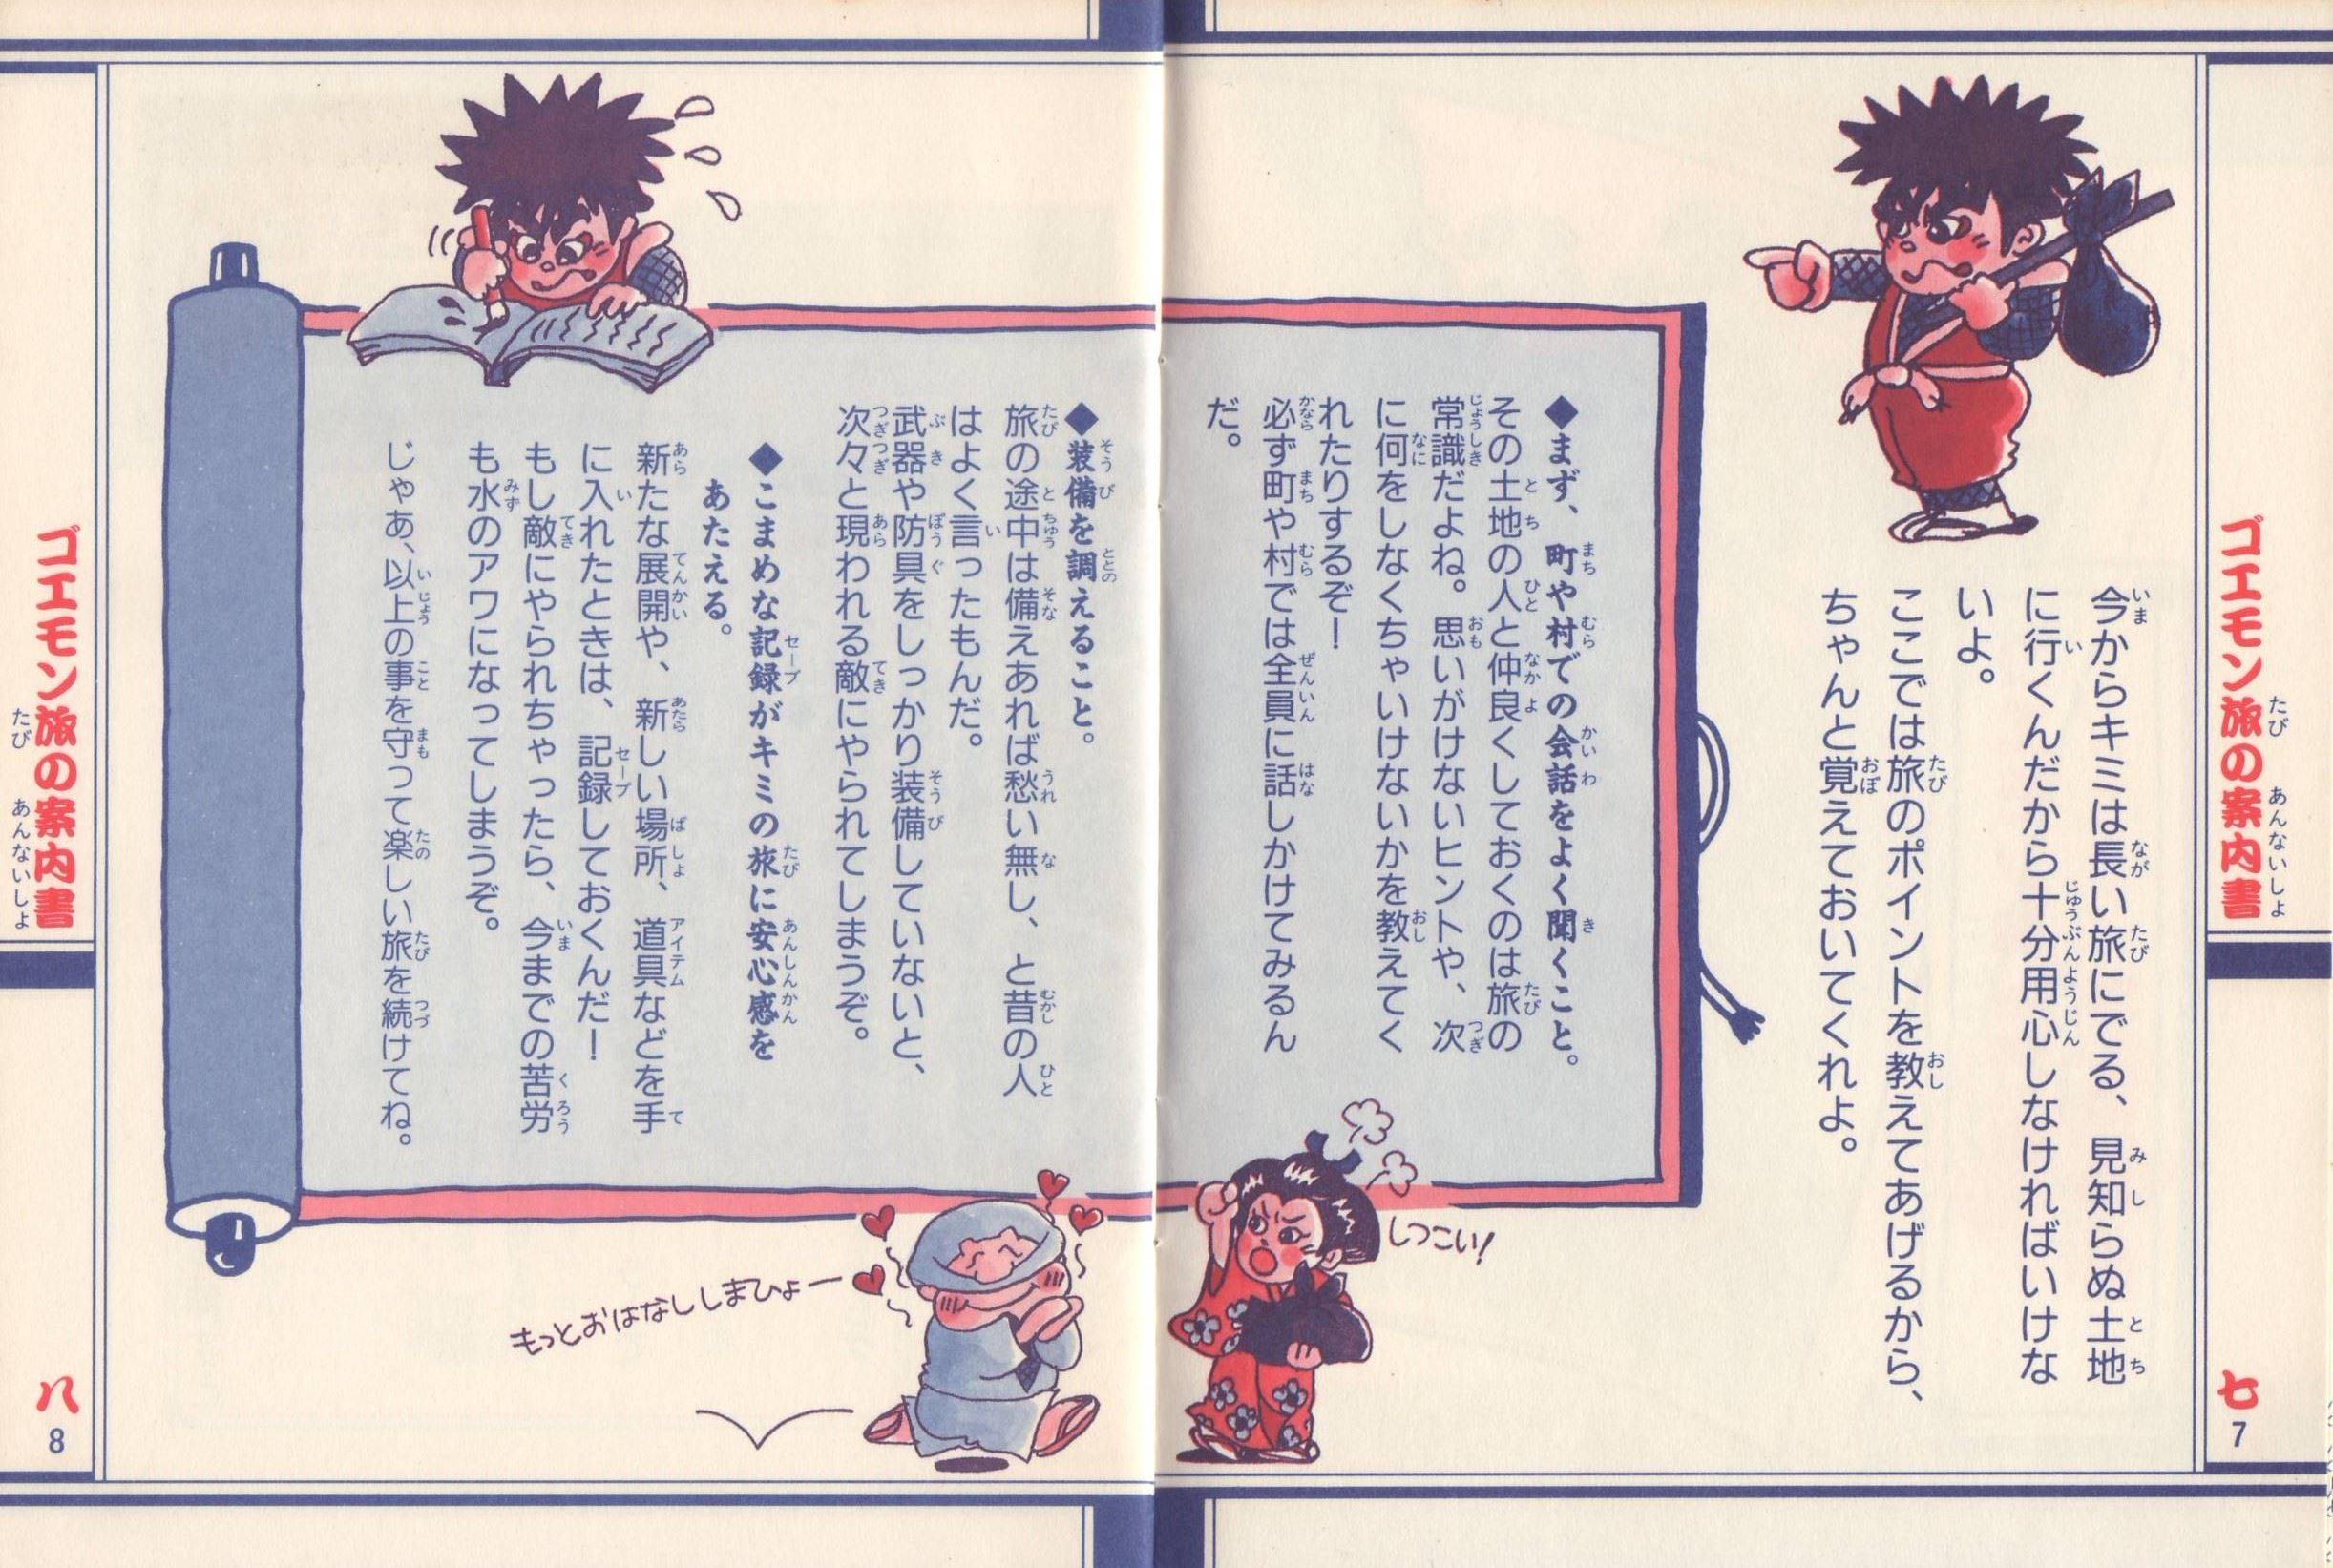 ゴエモン旅の案内書
今からキミは長い旅にでる、見知らぬ土地
に行くんだから十分用心しなければいけな
いよ。
ここでは旅のポイントを教えてあげるから、
ちゃんと覚えておいてくれよ。
◆まず、町や村での会話をよく聞くこと。
その土地の人と仲良くしておくのは旅の
常識だよね。思いがけないヒントや、次
に何をしなくちゃいけないかを教えてく
れたりするぞ！
必ず町や村では全員に話しかけてみるん
だ。
しつこい!
七
7
◆装備を調えること。
旅の途中は備えあれば愁い無し、と昔の人
はよく言ったもんだ。
武器や防具をしっかり装備していないと、
次々と現われる敵にやられてしまうぞ。
◆こまめな記録がキミの旅に安心感を
あたえる。
新たな展開や、新しい場所、道具などを手
に入れたときは、記録しておくんだ！
もし敵にやられちゃったら、今までの苦労
も水のアワになってしまうぞ。
じゃあ、以上の事を守って楽しい旅を続けてね。
もっとおはなししまひょー
ゴエモン旅の案内書
八
8